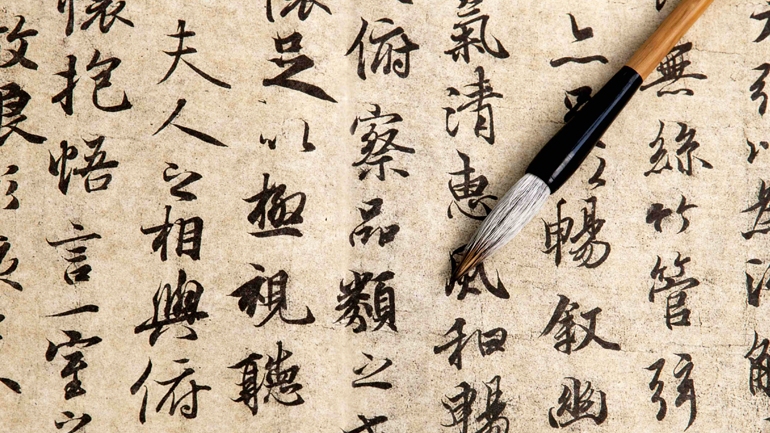 無絲竹管弦
亦足以暢叙幽
氣清惠風和暢
俯察品類之
懷足以極視聽
夫人之相與俯
懷抱悟言一室之
放浪